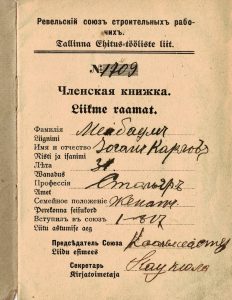 Ревельскій союз строительныхъ рабо-
чихъ.
Tallinna Ehitus-tööliste liit.
№ 1709
Членская книжка.
Liikme raamat.
Фамилія
Liignimi
Имя и отчество Іоганъ Карловъ
Risti ja isanimi
Лѣта 31
Wanadus
Профессія Столяръ
Amet
Семейное положеніе Женатъ
Perekonna seisukord
Вступилъ въ союз
Liidu astumise aeg
Предсѣдатель Союза
Liidu esimees
Секретарь
Kirjatoimetaja